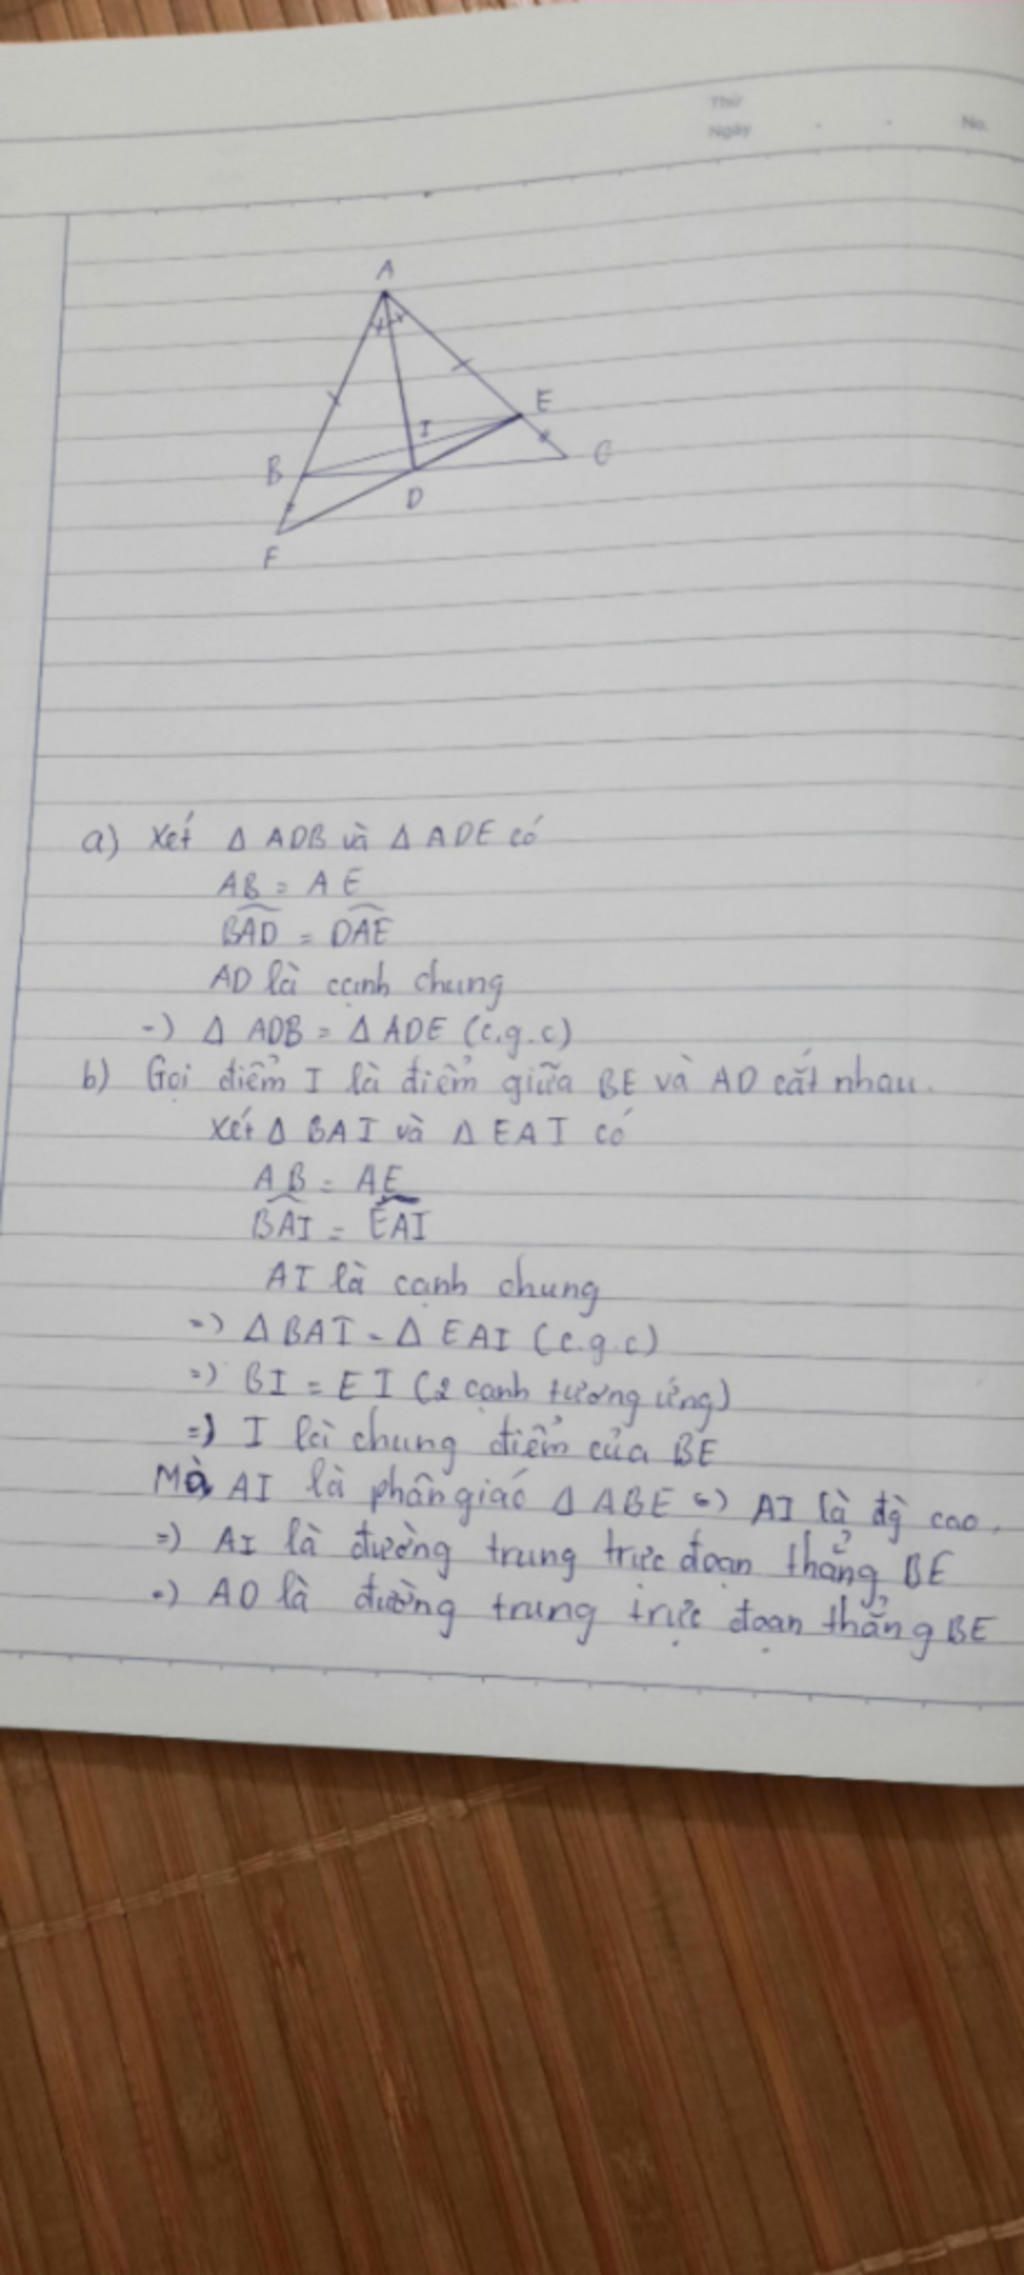 Thứ
Ngày
No.
A
E
I
B
C
D
F
a) Xét Δ ADB và Δ ADE có
AB = AE
BAD = DAE
AD là cạnh chung
=) Δ ADB = Δ ADE (c.g.c)
b) Gọi điểm I là điểm giữa BE và AD cắt nhau.
Xét Δ BAI và Δ EAI có
AB = AE
BAI = EAI
AI là cạnh chung
=) Δ BAI = Δ EAI (c.g.c)
=) BI = EI (2 cạnh tương ứng)
=) I là chung điểm của BE
Mà AI là phân giác Δ ABE =) AI là đg cao.
=) AI là đường trung trực đoạn thẳng BE
=) AD là đường trung trực đoạn thẳng BE